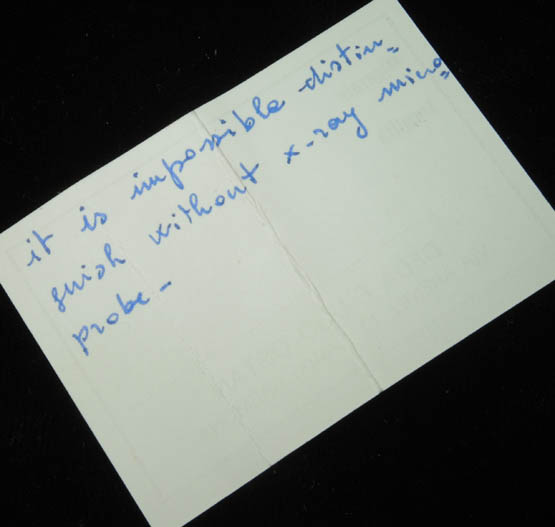 it is impossible distin=
guish without x-ray micro
probe-